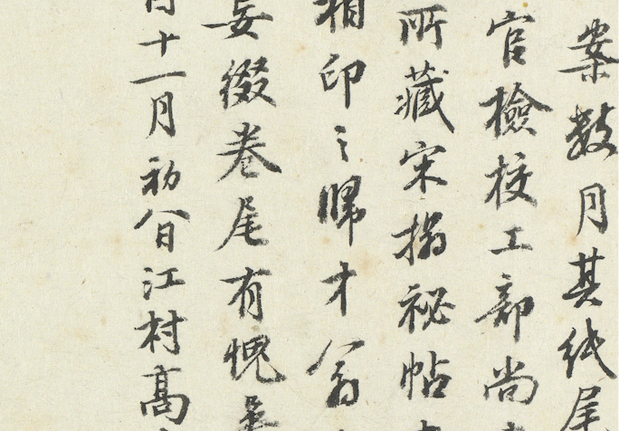 案數月其紙尾
官檢校工部尚
所藏宋搨祕帖
相印之歸才翁
妄綴卷尾有愧
十一月初八日江村高